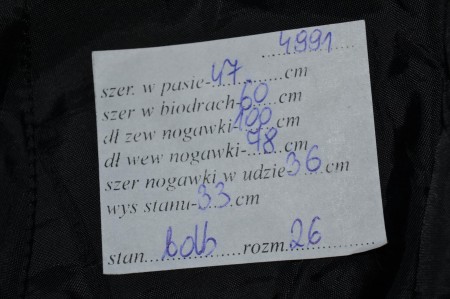 4991
szer. w pasie-47 cm
szer w biodrach-60 cm
dł zew nogawki-100 cm
dł wew nogawki-78 cm
szer nogawki w udzie 36 cm
wys stanu-33 cm
stan bdb rozm. 26